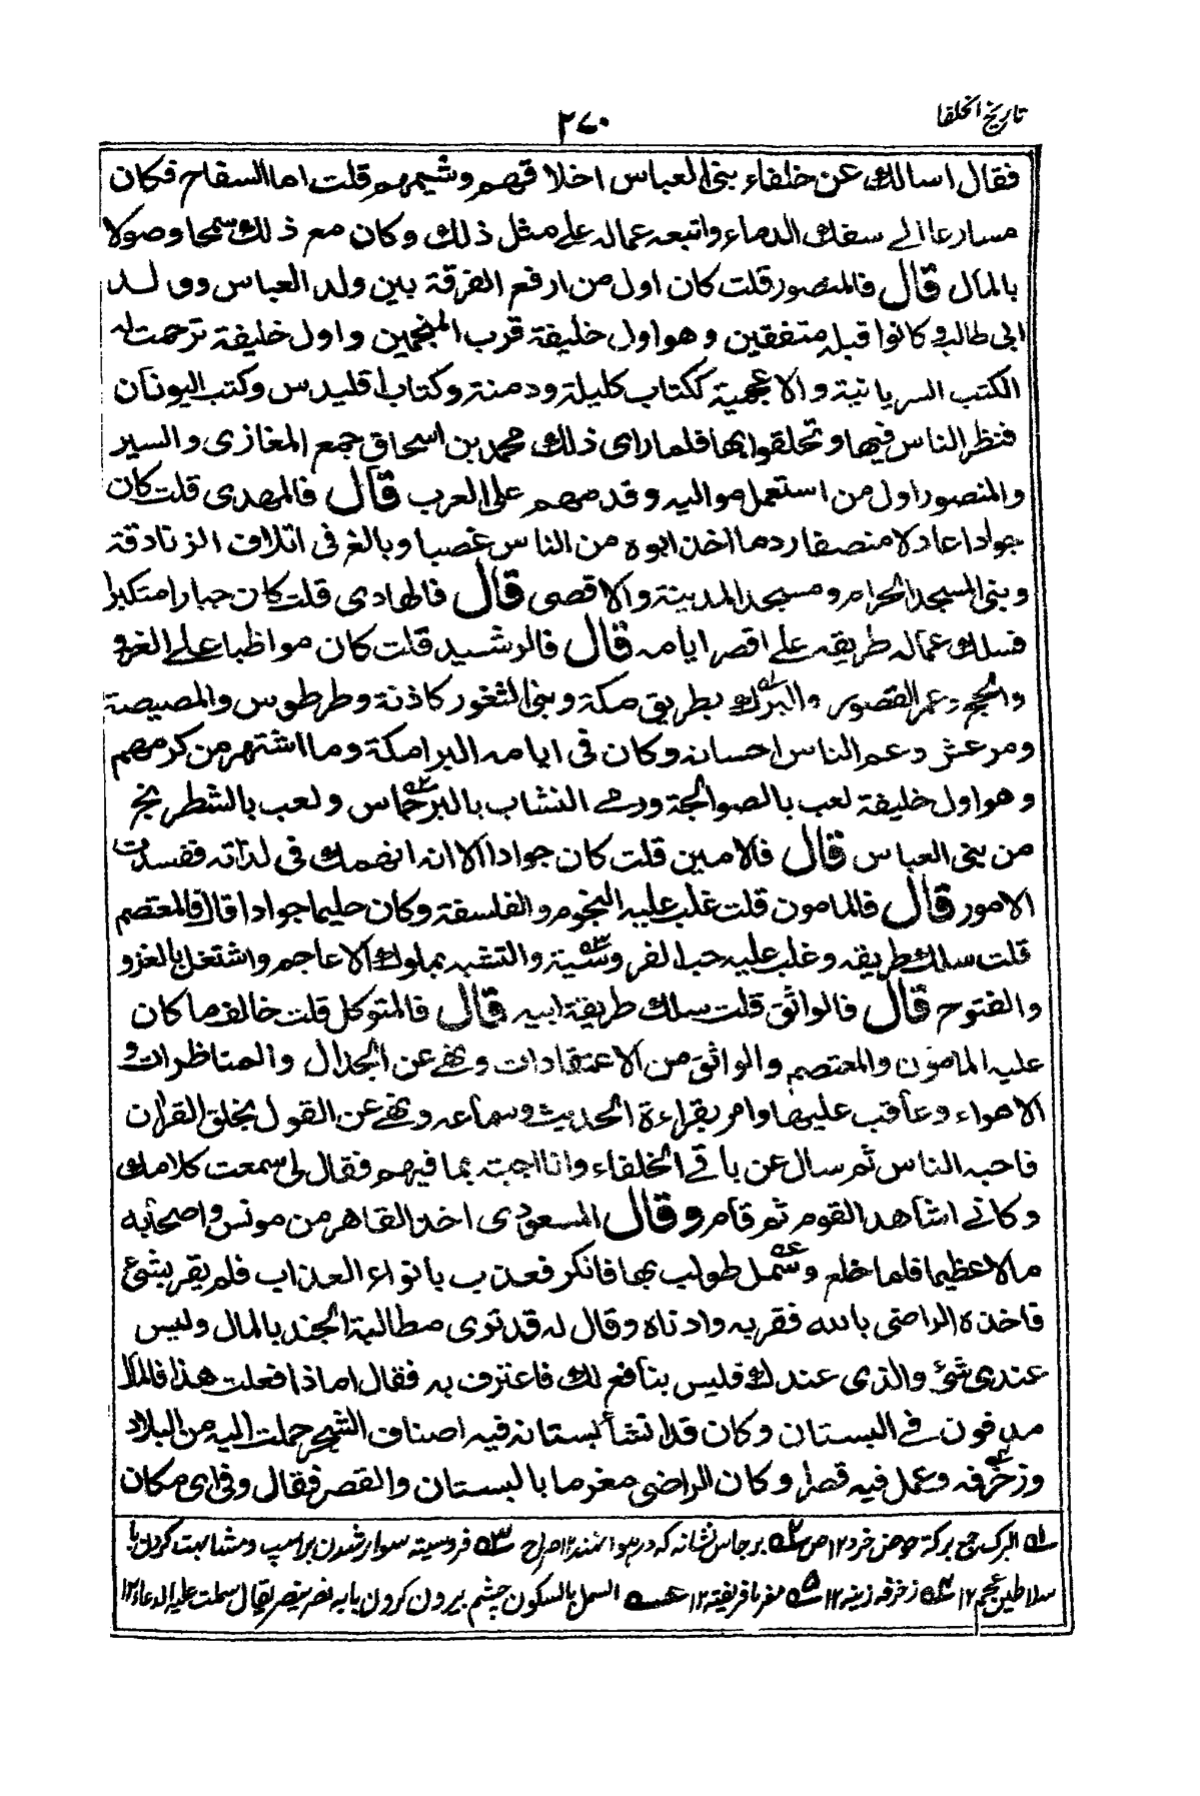 تاریخ الخلفا
۲۷۰
فقال اسالك عن خلفاء بنی العباس اخلاقهم وشیمهم قلت اما السفاح فکان
مسارعا الی سفك الدماء واتبعه عماله علی مثل ذلك وکان مع ذلك سمحا وصولا
بالمال قال فالمنصور قلت کان اول من ارفع الفرقة بین ولد العباس وولد
ابی طالب وکانوا قبله متفقین وهو اول خلیفة قرب المنجمین واول خلیفة ترجمت له
الکتب السریانیة والاعجمیة ککتاب کلیلة ودمنة وکتاب اقلیدس وکتب الیونان
فنظر الناس فیها وتعلقوا بها فلما رای ذلك محمد بن اسحاق جمع المغازی والسیر
والمنصور اول من استعمل موالیه وقدمهم علی العرب قال فالمهدی قلت کان
جوادا عادلا منصفا رد ما اخذ ابوه من الناس غصبا وبالغ فی اتلاف الزنادقة
وبنی المسجد الحرام ومسجد المدینة والاقصی قال فالهادی قلت کان جبارا متکبرا
فسلك عماله طریقه علی اقصر ایامه قال فالرشید قلت کان مواظبا علی الغزو
والحج وعمر القصور والبرك بطریق مکة وبنی الثغور کاذنة وطرطوس والمصیصة
ومرعش وعم الناس احسانه وکان فی ایامه البرامکة وما اشتهر من کرمهم
وهو اول خلیفة لعب بالصوالجة ورمی النشاب بالبرجاس ولعب بالشطرنج
من بنی العباس قال فالامین قلت کان جوادا الا انه انهمك فی لذاته ففسدت
الامور قال فالمامون قلت غلب علیه النجوم والفلسفة وکان حلیما جوادا قال فالمعتصم
قلت سلك طریقه وغلب علیه حب الفروسیة والتشبه بملوك الاعاجم واشتغل بالغزو
والفتوح قال فالواثق قلت سلك طریقة ابیه قال فالمتوکل قلت خالف ما کان
علیه المامون والمعتصم والواثق من الاعتقادات ونهی عن الجدال والمناظرات و
الاهواء وعاقب علیها وامر بقراءة الحدیث وسماعه ونهی عن القول بخلق القران
فاحبه الناس ثم سال عن باقی الخلفاء وانا اجبته بما فیهم فقال لی سمعت کلامك
وکانی اشاهد القوم ثم قام وقال المسعودی اخذ القاهر من مونس واصحابه
مالا عظیما فلما خلع وسمل طولب بها فانکر فعذب بانواع العذاب فلم یقر بشئ
فاخذه الراضی بالله فقربه وادناه وقال له قد تری مطالبة الجند بالمال ولیس
عندی شئ والذی عندك فلیس بنافع لك فاعترف به فقال اما ذا فعلت هذا فالمال
مدفون فی البستان وکان قد انشأ بستانا فیه اصناف الشجر حملت الیه من البلاد
وزخرفه وعمل فیه قصرا وکان الراضی مغرما بالبستان والقصر فقال وفی ای مکان
۱ البرک جمع برکة حوض خرد ۱۲ ص ۲ برجاس نشانه که در هوا نهند ۱۲ صراح ۳ فروسیته سوار شدن بر اسپ و مشابهت کردن با
سلاطین عجم ۱۲ ۴ زخرفه زینه ۱۲ ۵ مغرما فریفته ۱۲ السمل بالسکون چشم بیرون کردن